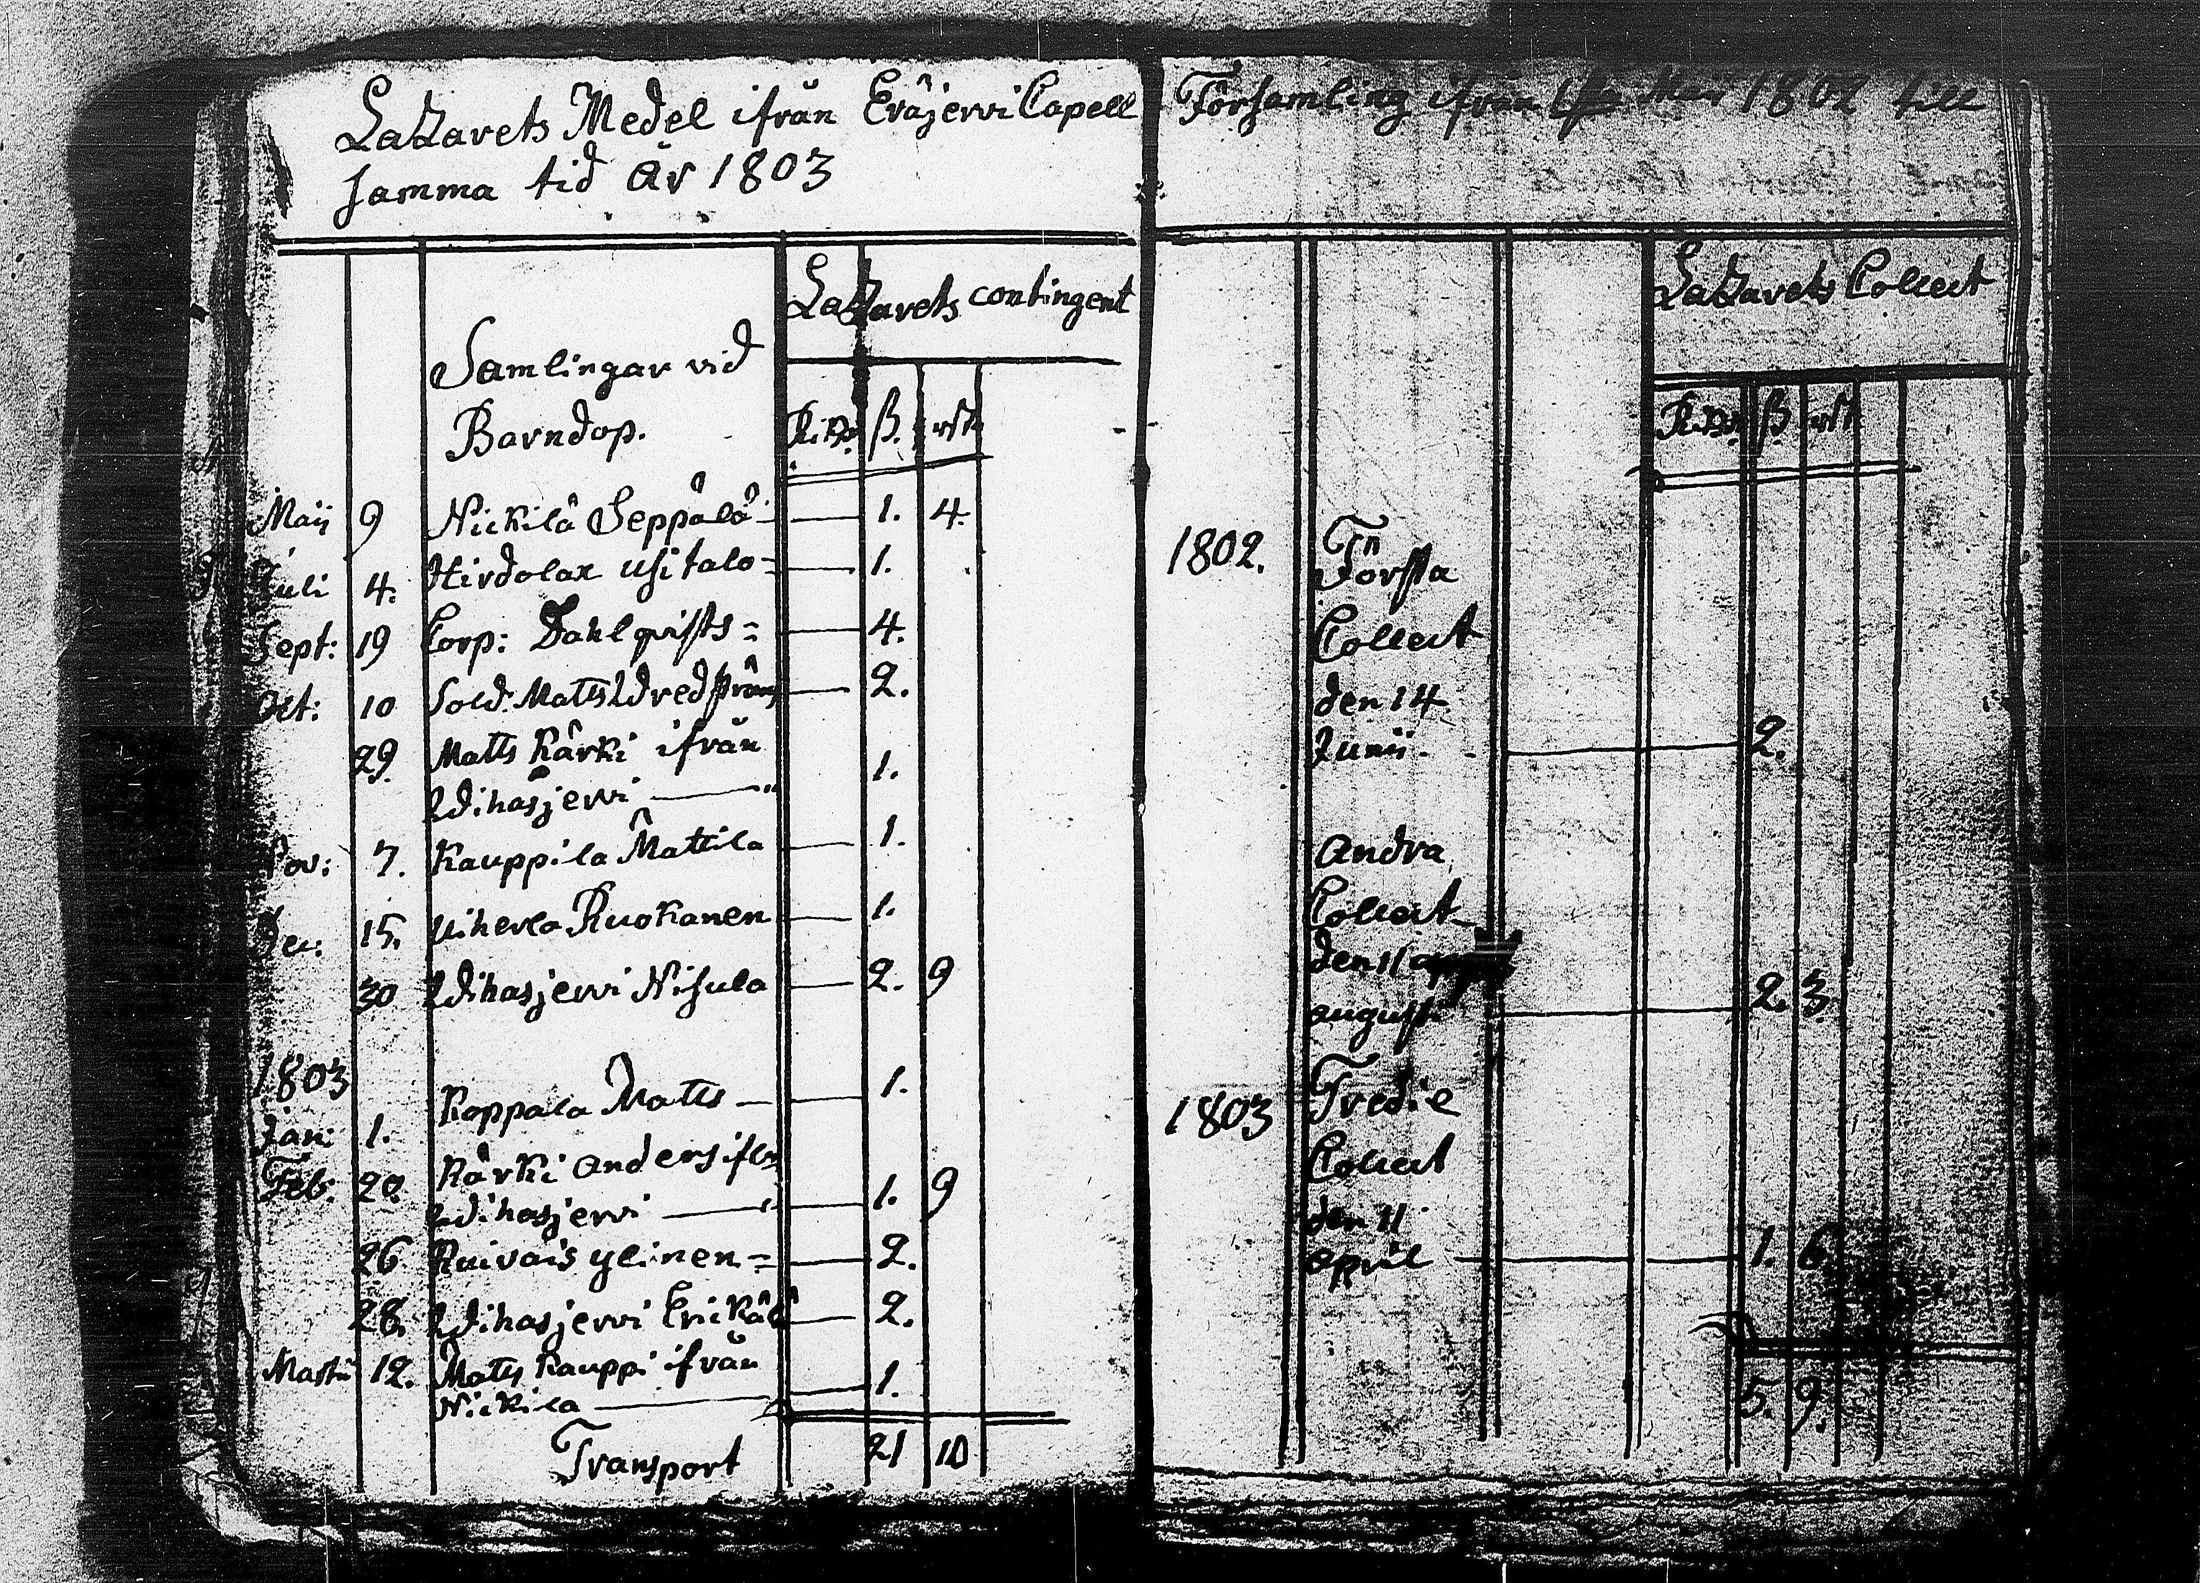 Latzarets Medel ifrån Eräjervi Capell
samma tid år 1803
Latzarets contingent
Samlingar vid
Barndop.
R:dr ß. rst.
Maij 9 Nickilä Seppälä 1. 4.
Juli 4. Hirdolax usitalo 1.
Sept: 19 Corp: Dahlqvists 4.
Oct: 10 Sold. Matts 2.
29. Matts Kärki ifrån
Wihasjervi 1.
Nov: 7. Kauppila Mattila 1.
Dec: 15. Uiherla Ruokanen 1.
30 Wihasjervi Nisula 2. 9
1803
Jan: 1. Koppala Matts 1.
Feb: 20. Kärki Anders ifrån
Wihasjervi 1. 9
26 Ruivais ylinen 2.
28. Wihasjervi Erikäl 2.
Martii 12. Matts Kauppi ifrån
Nickila 1.
Transport 21 10
Församling ifrån Maii 1802 till
Latzarets Collect
R:dr ß rst
1802. Första
Collect
den 14
Junii. 2.
Andra
Collect
den 11
august: 2. 3.
1803 Tredie
Collect
den 11
april 1. 6.
5. 9.